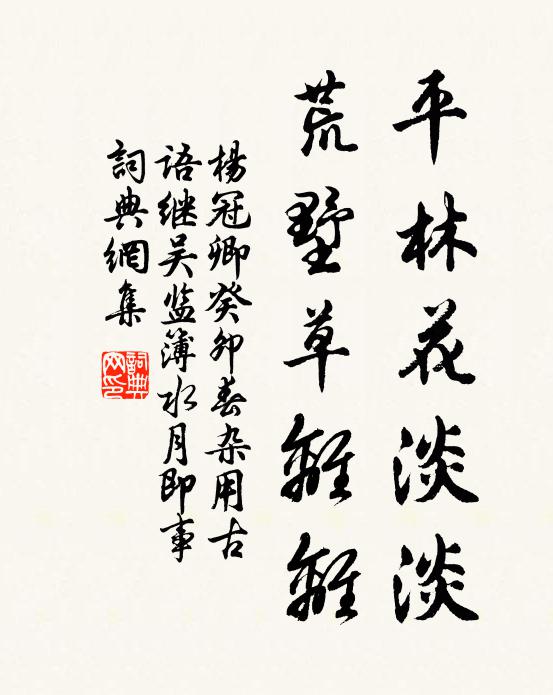 平林花淡淡
荒墅草離離
楊冠卿癸卯春杂用古
语继吴监簿水月即事
詞典網集
詞典網印